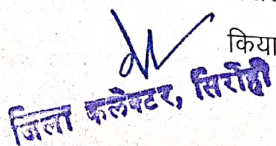 किया
जिला कलेक्टर, सिरोही